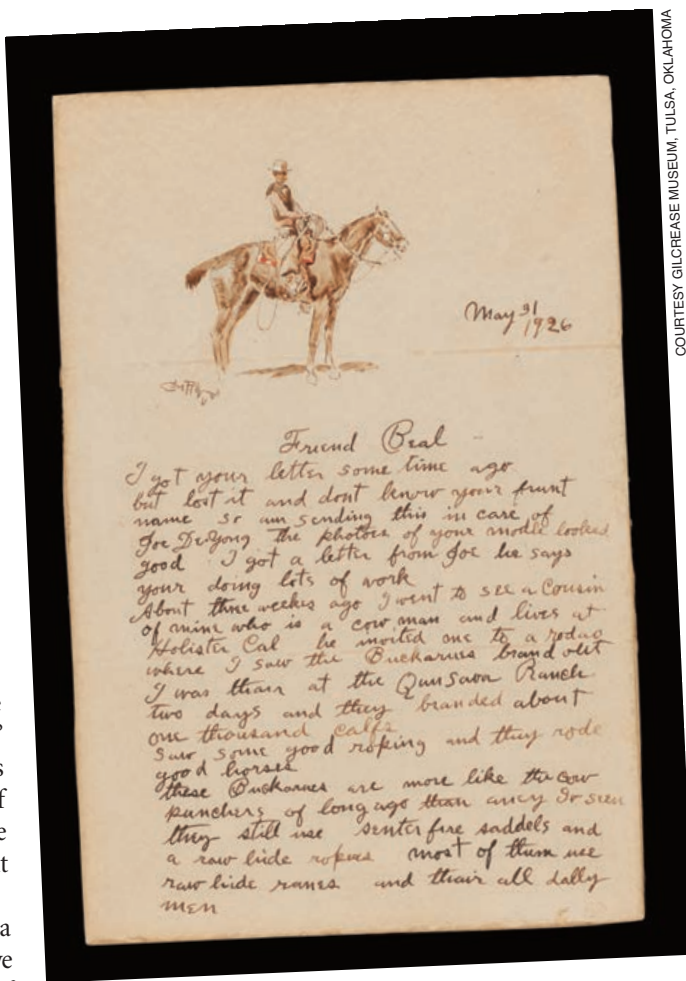 COURTESY GILCREASE MUSEUM, TULSA, OKLAHOMA
May 31
1926
Friend Beal
I got your letter some time ago
but lost it and dont know your frunt
name so am sending this in care of
Joe DeYong the photoes of your modle looked
good I got a letter from Joe he says
your doing lots of work
About three weekes ago I went to see a Cousin
of mine who is a cow man and lives at
Holister Cal he invited me to a rodao
where I saw the Buckarues brand
I was thair at the Ranch
two days and they branded about
one thousand calfs
saw some good roping and they rode
good horses
these Buckarues are more like the cow
punchers of long ago than aney Iv seen
they still use senter fire saddels and
a raw hide ropes most of them use
raw hide ranes and thair all dally
men
s
f
e
t
a